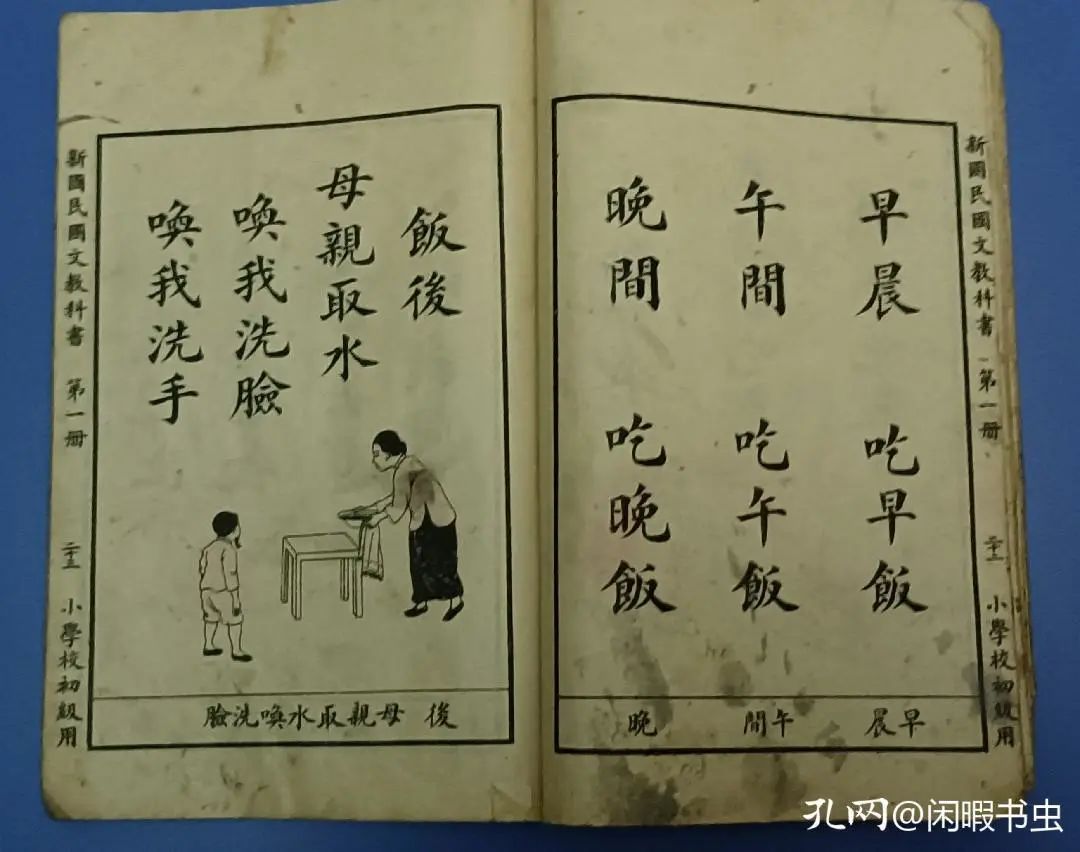 新國民國文教科書 第一册 二十二 小學校初級用
早晨 吃早飯
午間 吃午飯
晚間 吃晚飯
早晨 午間 晚
飯後
母親取水
喚我洗臉
喚我洗手
後 母親取水喚洗臉
新國民國文教科書 第一册 二十三 小學校初級用
孔网@闲暇书虫